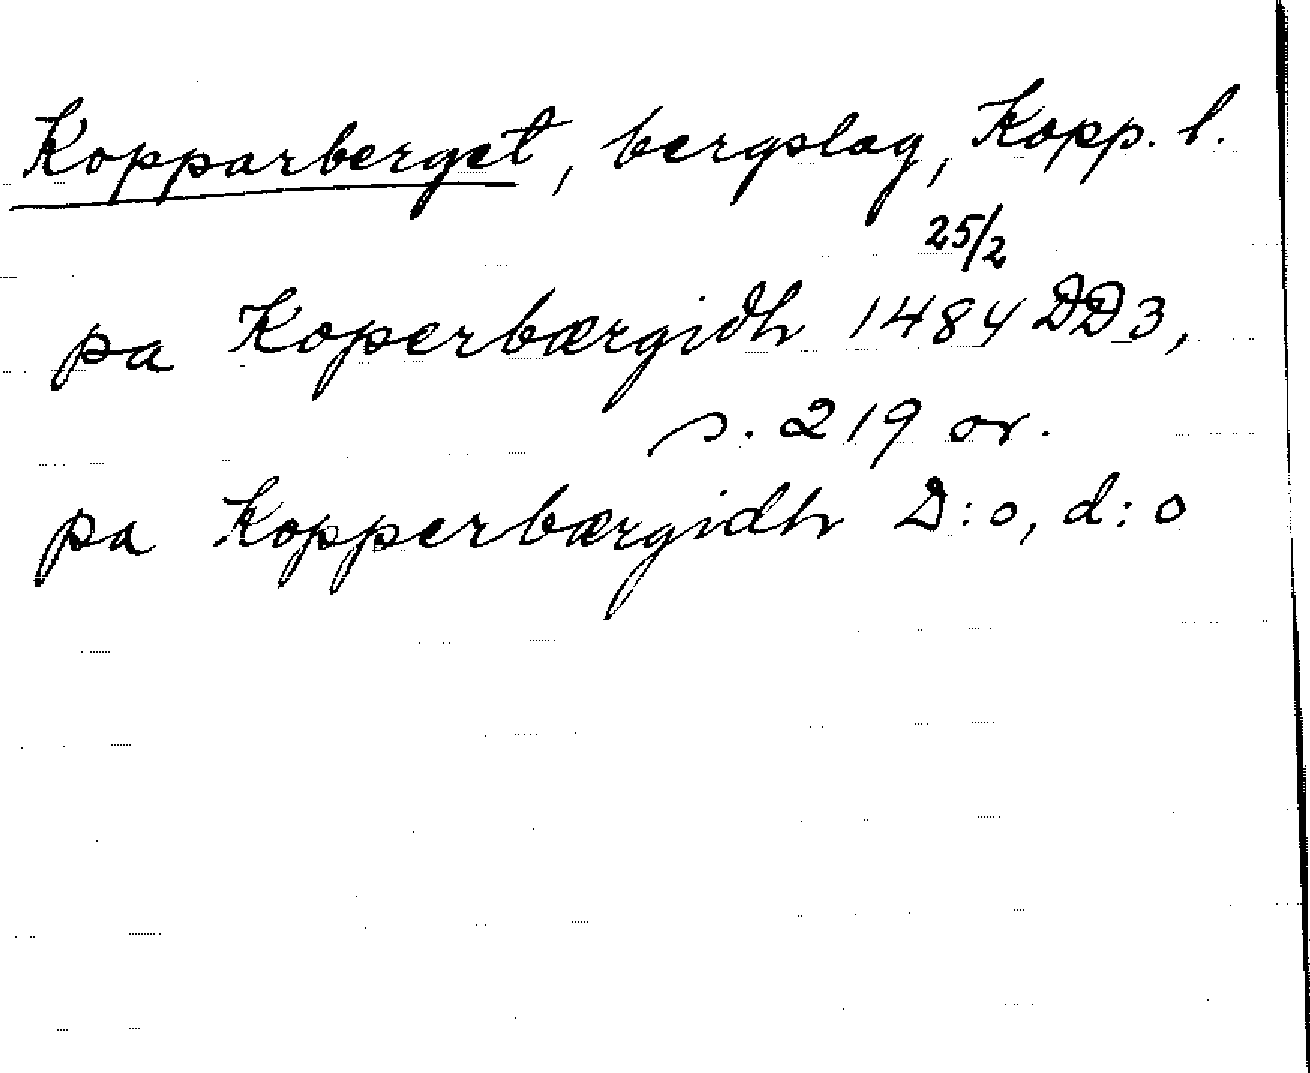 Kopparberget, bergslag, Kopp. l.
pa Koperbærgidh 25/2 1484 DD3,
s. 219 or.
pa Kopperbærgidh D:o, d:o